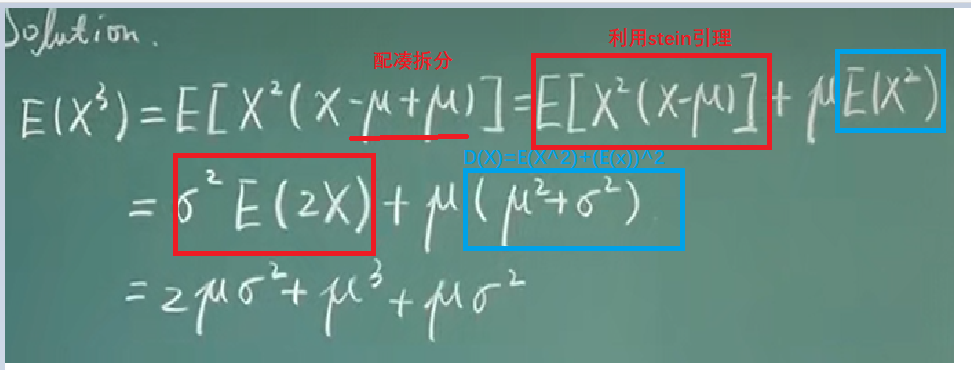 Solution.
利用stein引理
配凑拆分
E(X³)=E[X²(X-μ+μ)]=E[X²(X-μ)]+μE(X²)
D(X)=E(X^2)+(E(x))^2
=σ²E(2X)+μ(μ²+σ²)
=2μσ²+μ³+μσ²